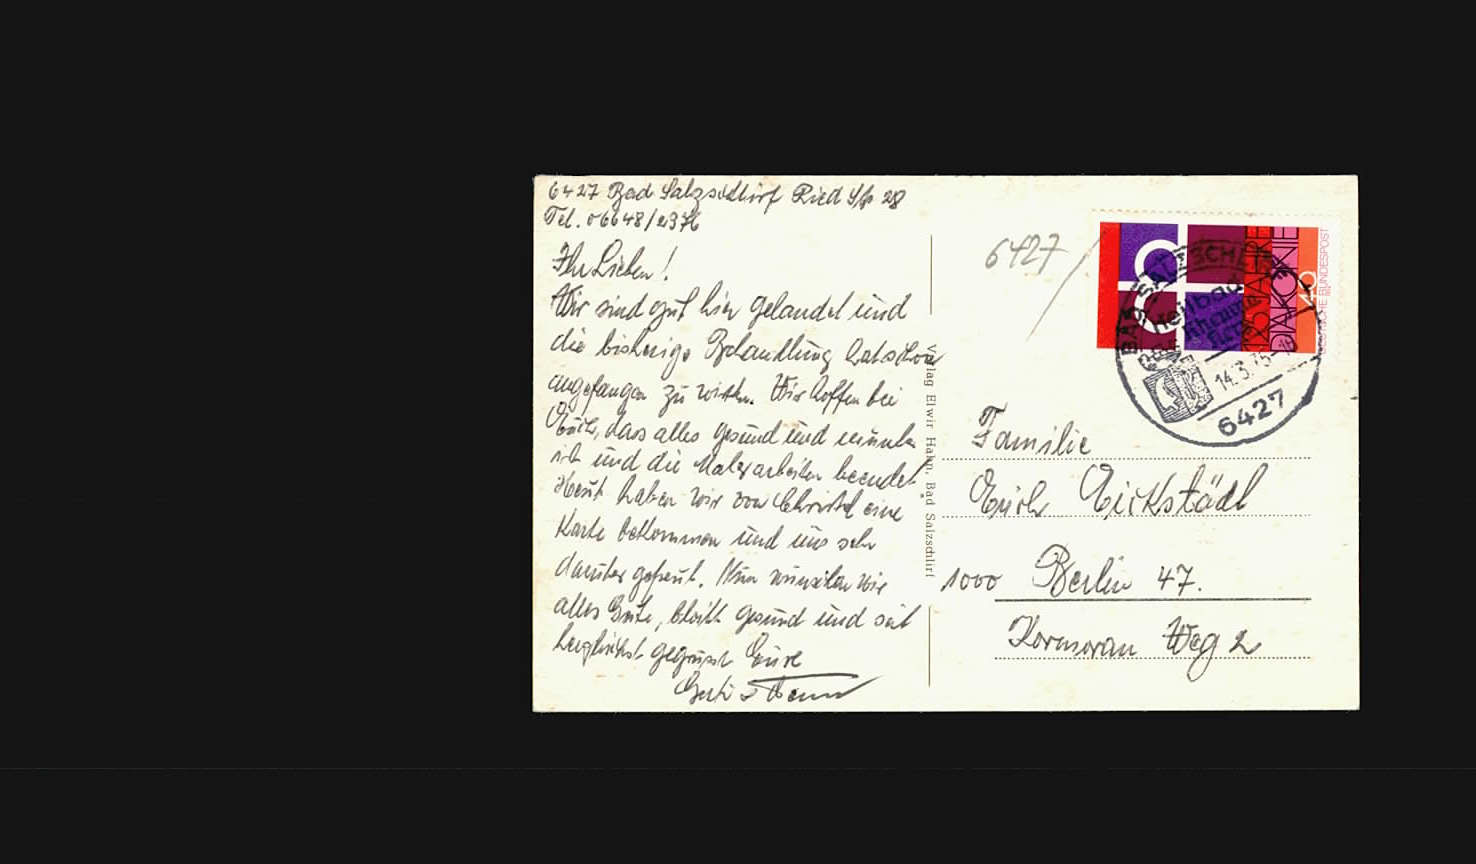 6427 Bad Salzschlirf Ried Str 28
Tel. 06648/2376
Ihr Lieben!
Wir sind gut hier gelandet und
die bisherige Behandlung hat schon
angefangen zu wirken. Wir hoffen bei
Euch, dass alles gesund und munter
ist und die Malerarbeiten beendet
Heut haben wir von Christel eine
Karte bekommen und uns sehr
darüber gefreut. Nun wünschen wir
alles Gute, bleibt gesund und seit
herzlichst gegrüsst Eure
Verlag Elwir Hahn, Bad Salzschlirf
6427
DIAKONIE
DEUTSCHE BUNDESPOST
BAD SALZSCHLIRF
Heilbad
Rheuma
14.3.75
6427
Familie
Erich Eickstädt
1000 Berlin 47.
Kormoran Weg 2